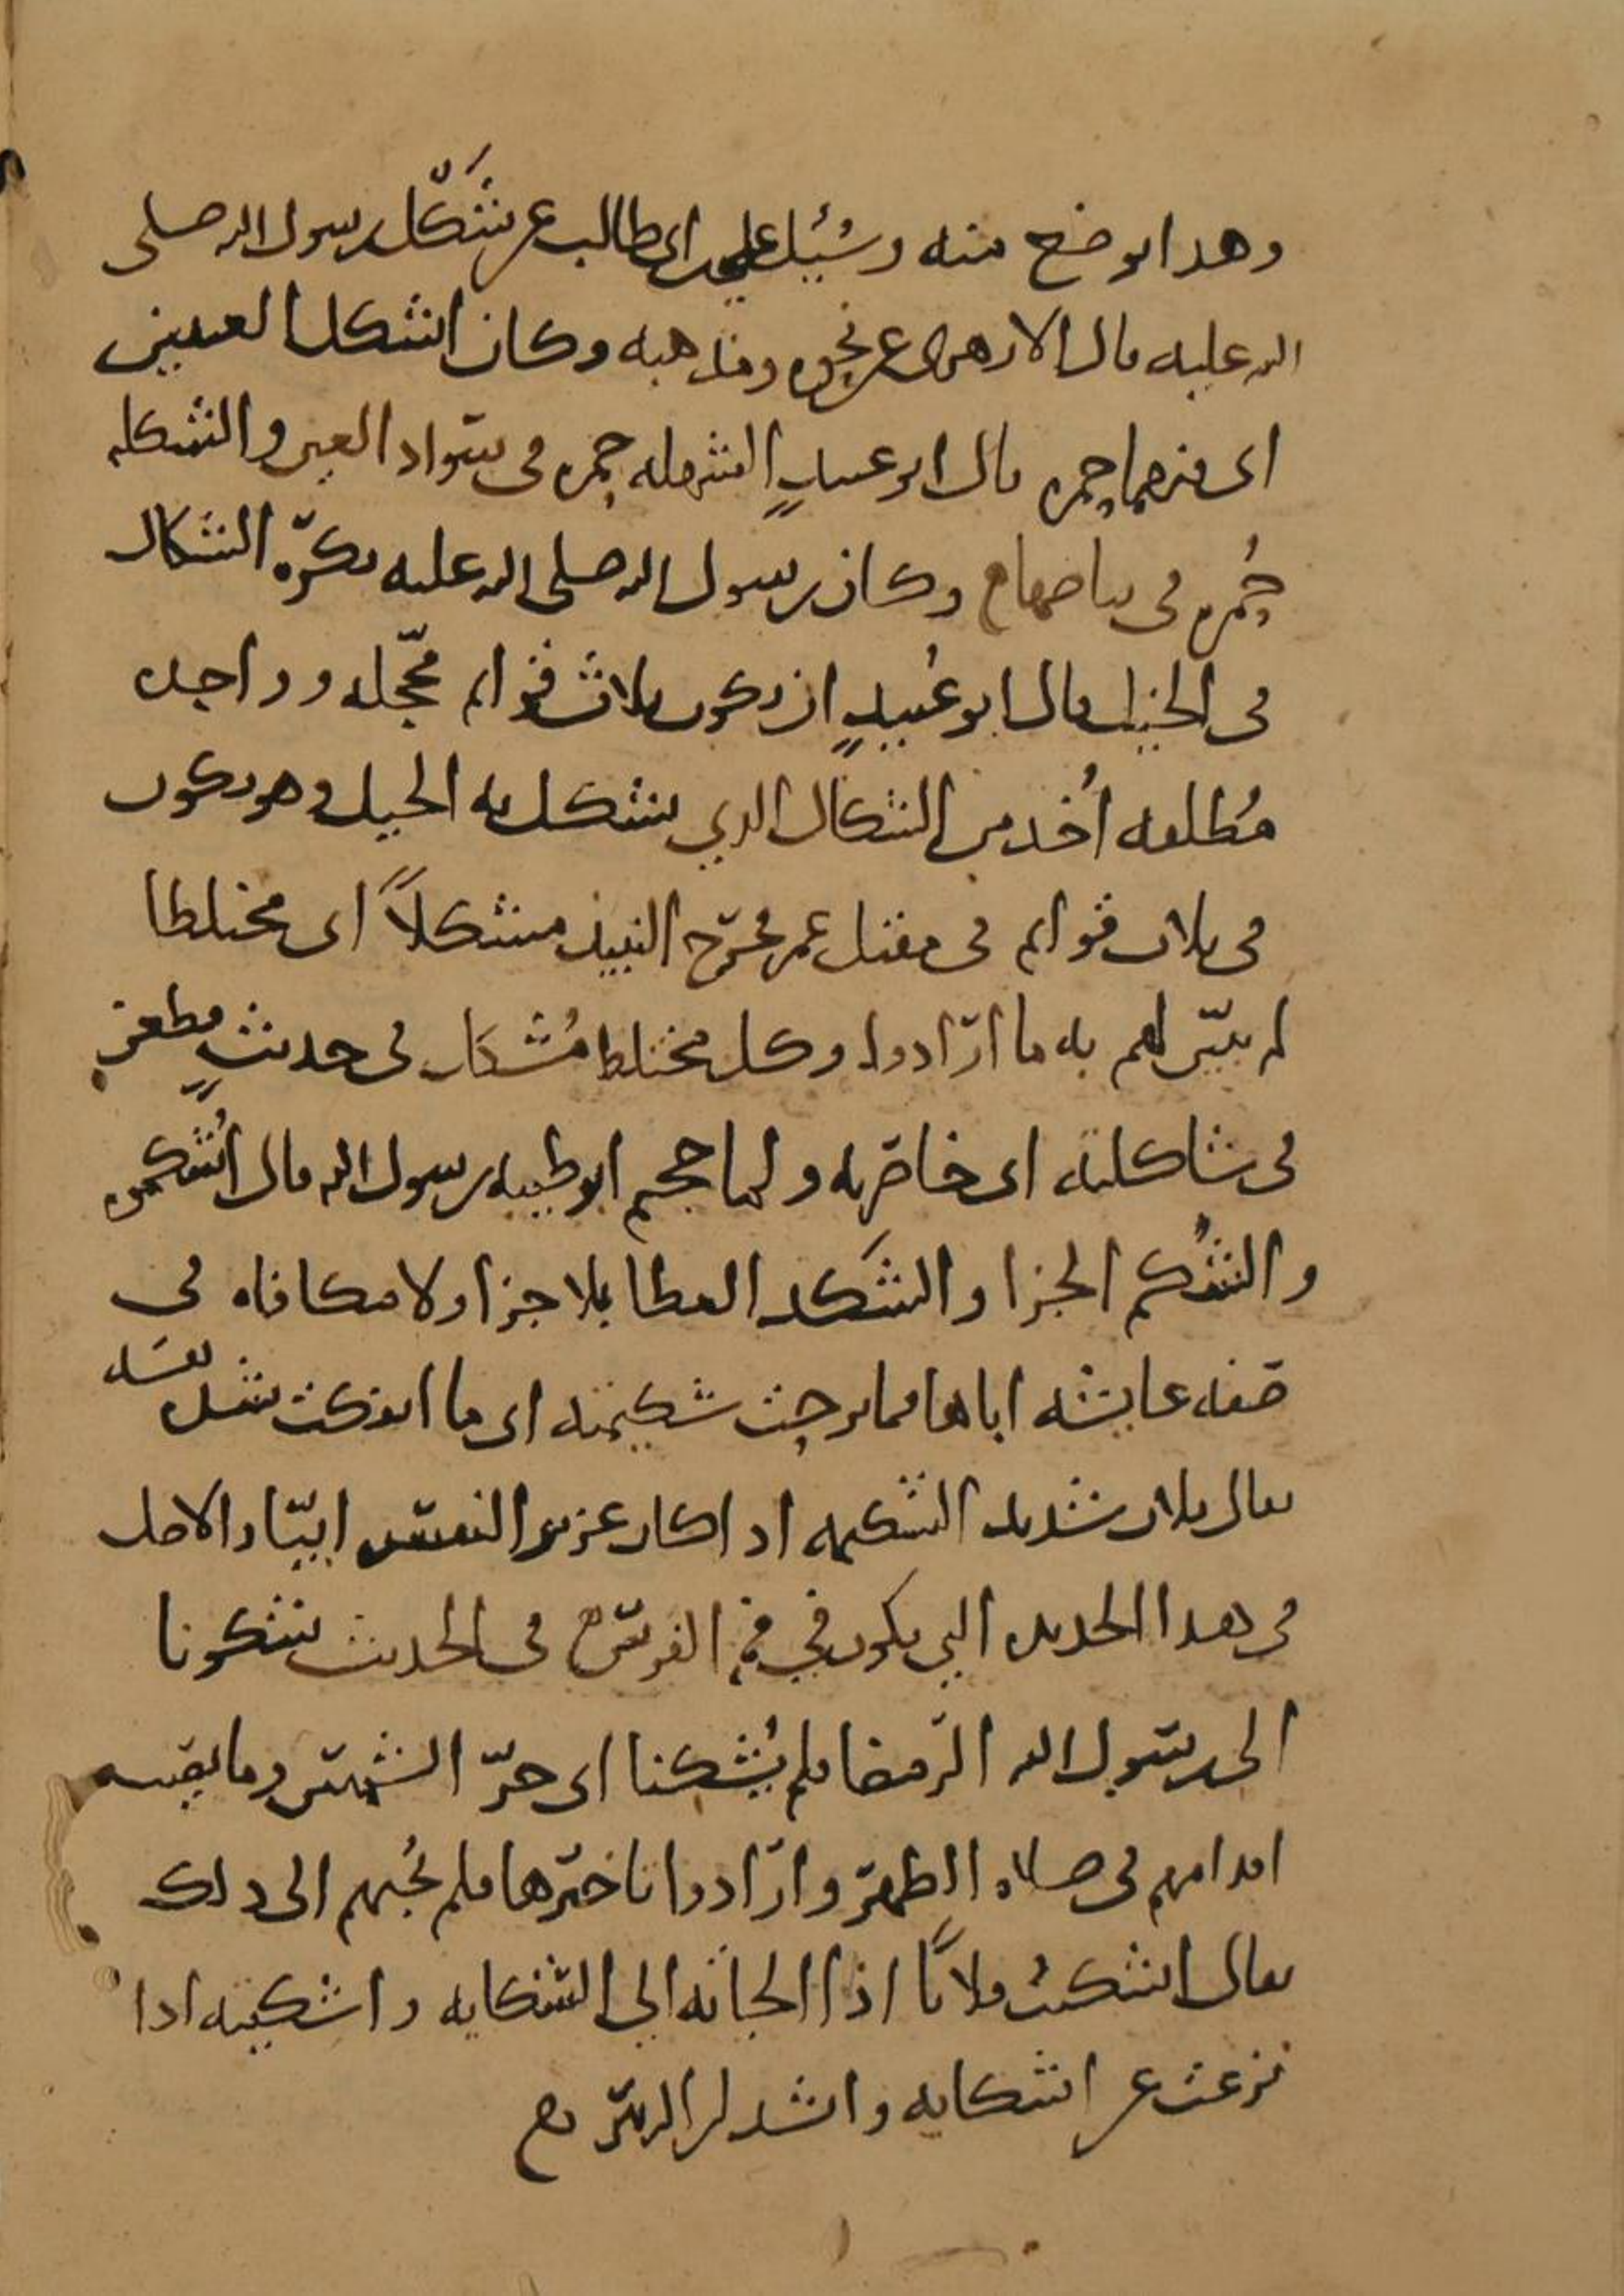 وهذا اوضح منه وسُئِل علي بن ابي طالب عن شَكْل رسول الله صلى
الله عليه قال الازهري عن نحوه ومذهبه وكان اشكل العينين
اي فيهما حمره قال ابو عبيدٍ الشهله حمره في سواد العين والشكله
حُمره في بياضها وكان رسول الله صلى الله عليه يكرَه الشكال
في الخيل قال ابو عُبيدٍ ان يكون ثلاث قوايم محجّله وواحده
مُطلقه أُخذ من الشكال الذي يشكل به الخيل وهو يكون
في ثلاث قوايم في مقتل عمر فخرج النبيذ مشكلاً اي مختلطا
لم يبيّن لهم به ما ارادوا وكل مختلط مُشكل في حديثٍ فطعن
في شاكلته اي خاصرته ولما حجم ابو طيبه رسول الله قال اُشكموه
والشُكم الجزا والشَكد العطا بلا جزا ولا مكافاه في
صفه عايشه اباها فما برحت شكيمته اي ما انفكت شده نفسه
يقال فلان شديد الشكيمه اذا كان عزيز النفس ابيّا والاصل
في هذا الحديده التي يكون في فم الفرس في الحديث شكونا
الى رسول الله الرمضا فلم يُشكنا اي حرّ الشمس وما يصيب
اقدامهم في صلاه الظهر وارادوا تاخيرها فلم يُجبهم الى ذلك
يقال اشكيتُ فلانًا اذا الجاته الى الشكايه واشكيته اذا
نزعت عن اشكايه وانشد ابن الزبير